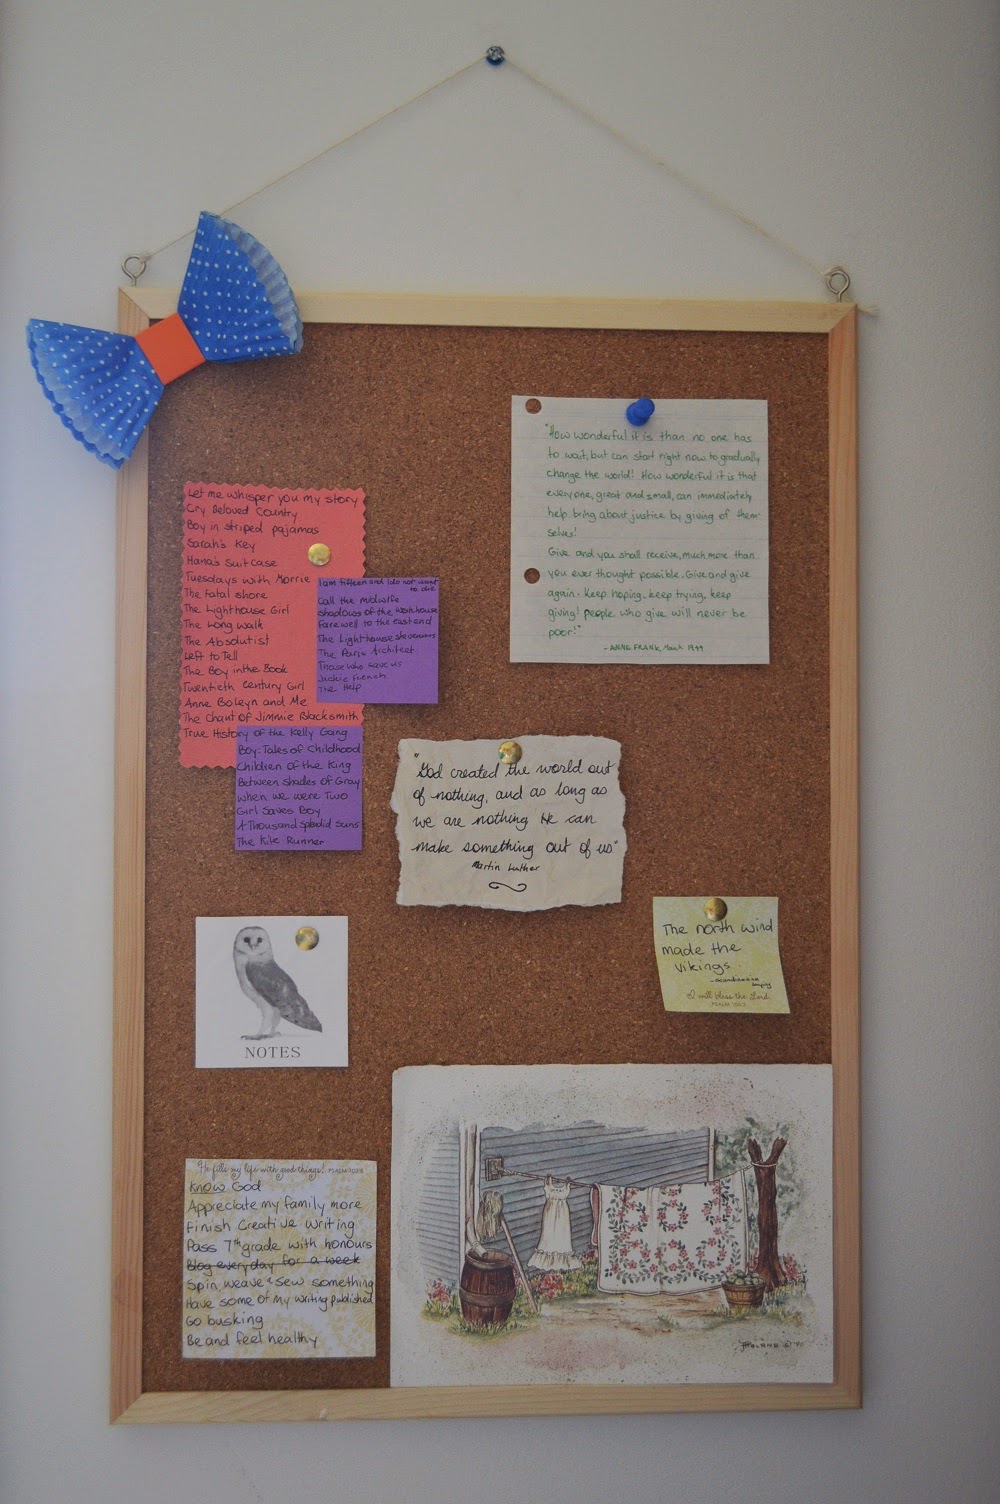 Let me whisper you my story
Cry Beloved Country
Boy in striped pajamas
Sarah's Key
Hana's Suitcase
Tuesdays with Morrie
The fatal shore
The Lighthouse Girl
The Long Walk
The Absolutist
Left to Tell
The Boy in the Book
Twentieth Century Girl
Anne Boleyn and Me
The Chant of Jimmie Blacksmith
True History of the Kelly Gang
I am fifteen and I do not want
to die
Call the midwife
Shadows of the Workhouse
Farewell to the east end
The Lighthouse
The Paris Architect
Those who save us
Jackie French
The Help
Boy: Tales of Childhood
Children of the King
Between Shades of Gray
When we were Two
Girl Saves Boy
A Thousand Splendid Suns
The Kite Runner
"How wonderful it is than no one has
to wait, but can start right now to gradually
change the world! How wonderful it is that
everyone, great and small, can immediately
help bring about justice by giving of them-
selves!
Give and you shall receive, much more than
you ever thought possible. Give and give
again. Keep hoping, keep trying, keep
giving! People who give will never be
poor!"
- ANNE FRANK, March 1944
"God created the world out
of nothing, and as long as
we are nothing He can
make something out of us"
Martin Luther
The north wind
made the
vikings.
- Scandinavian
I will bless the Lord
NOTES
He fills my life with good things!
Know God
Appreciate my family more
Finish Creative Writing
Pass 7th grade with honours
Blog every day for a week
Spin, weave & sew something
Have some of my writing published
Go busking
Be and feel healthy